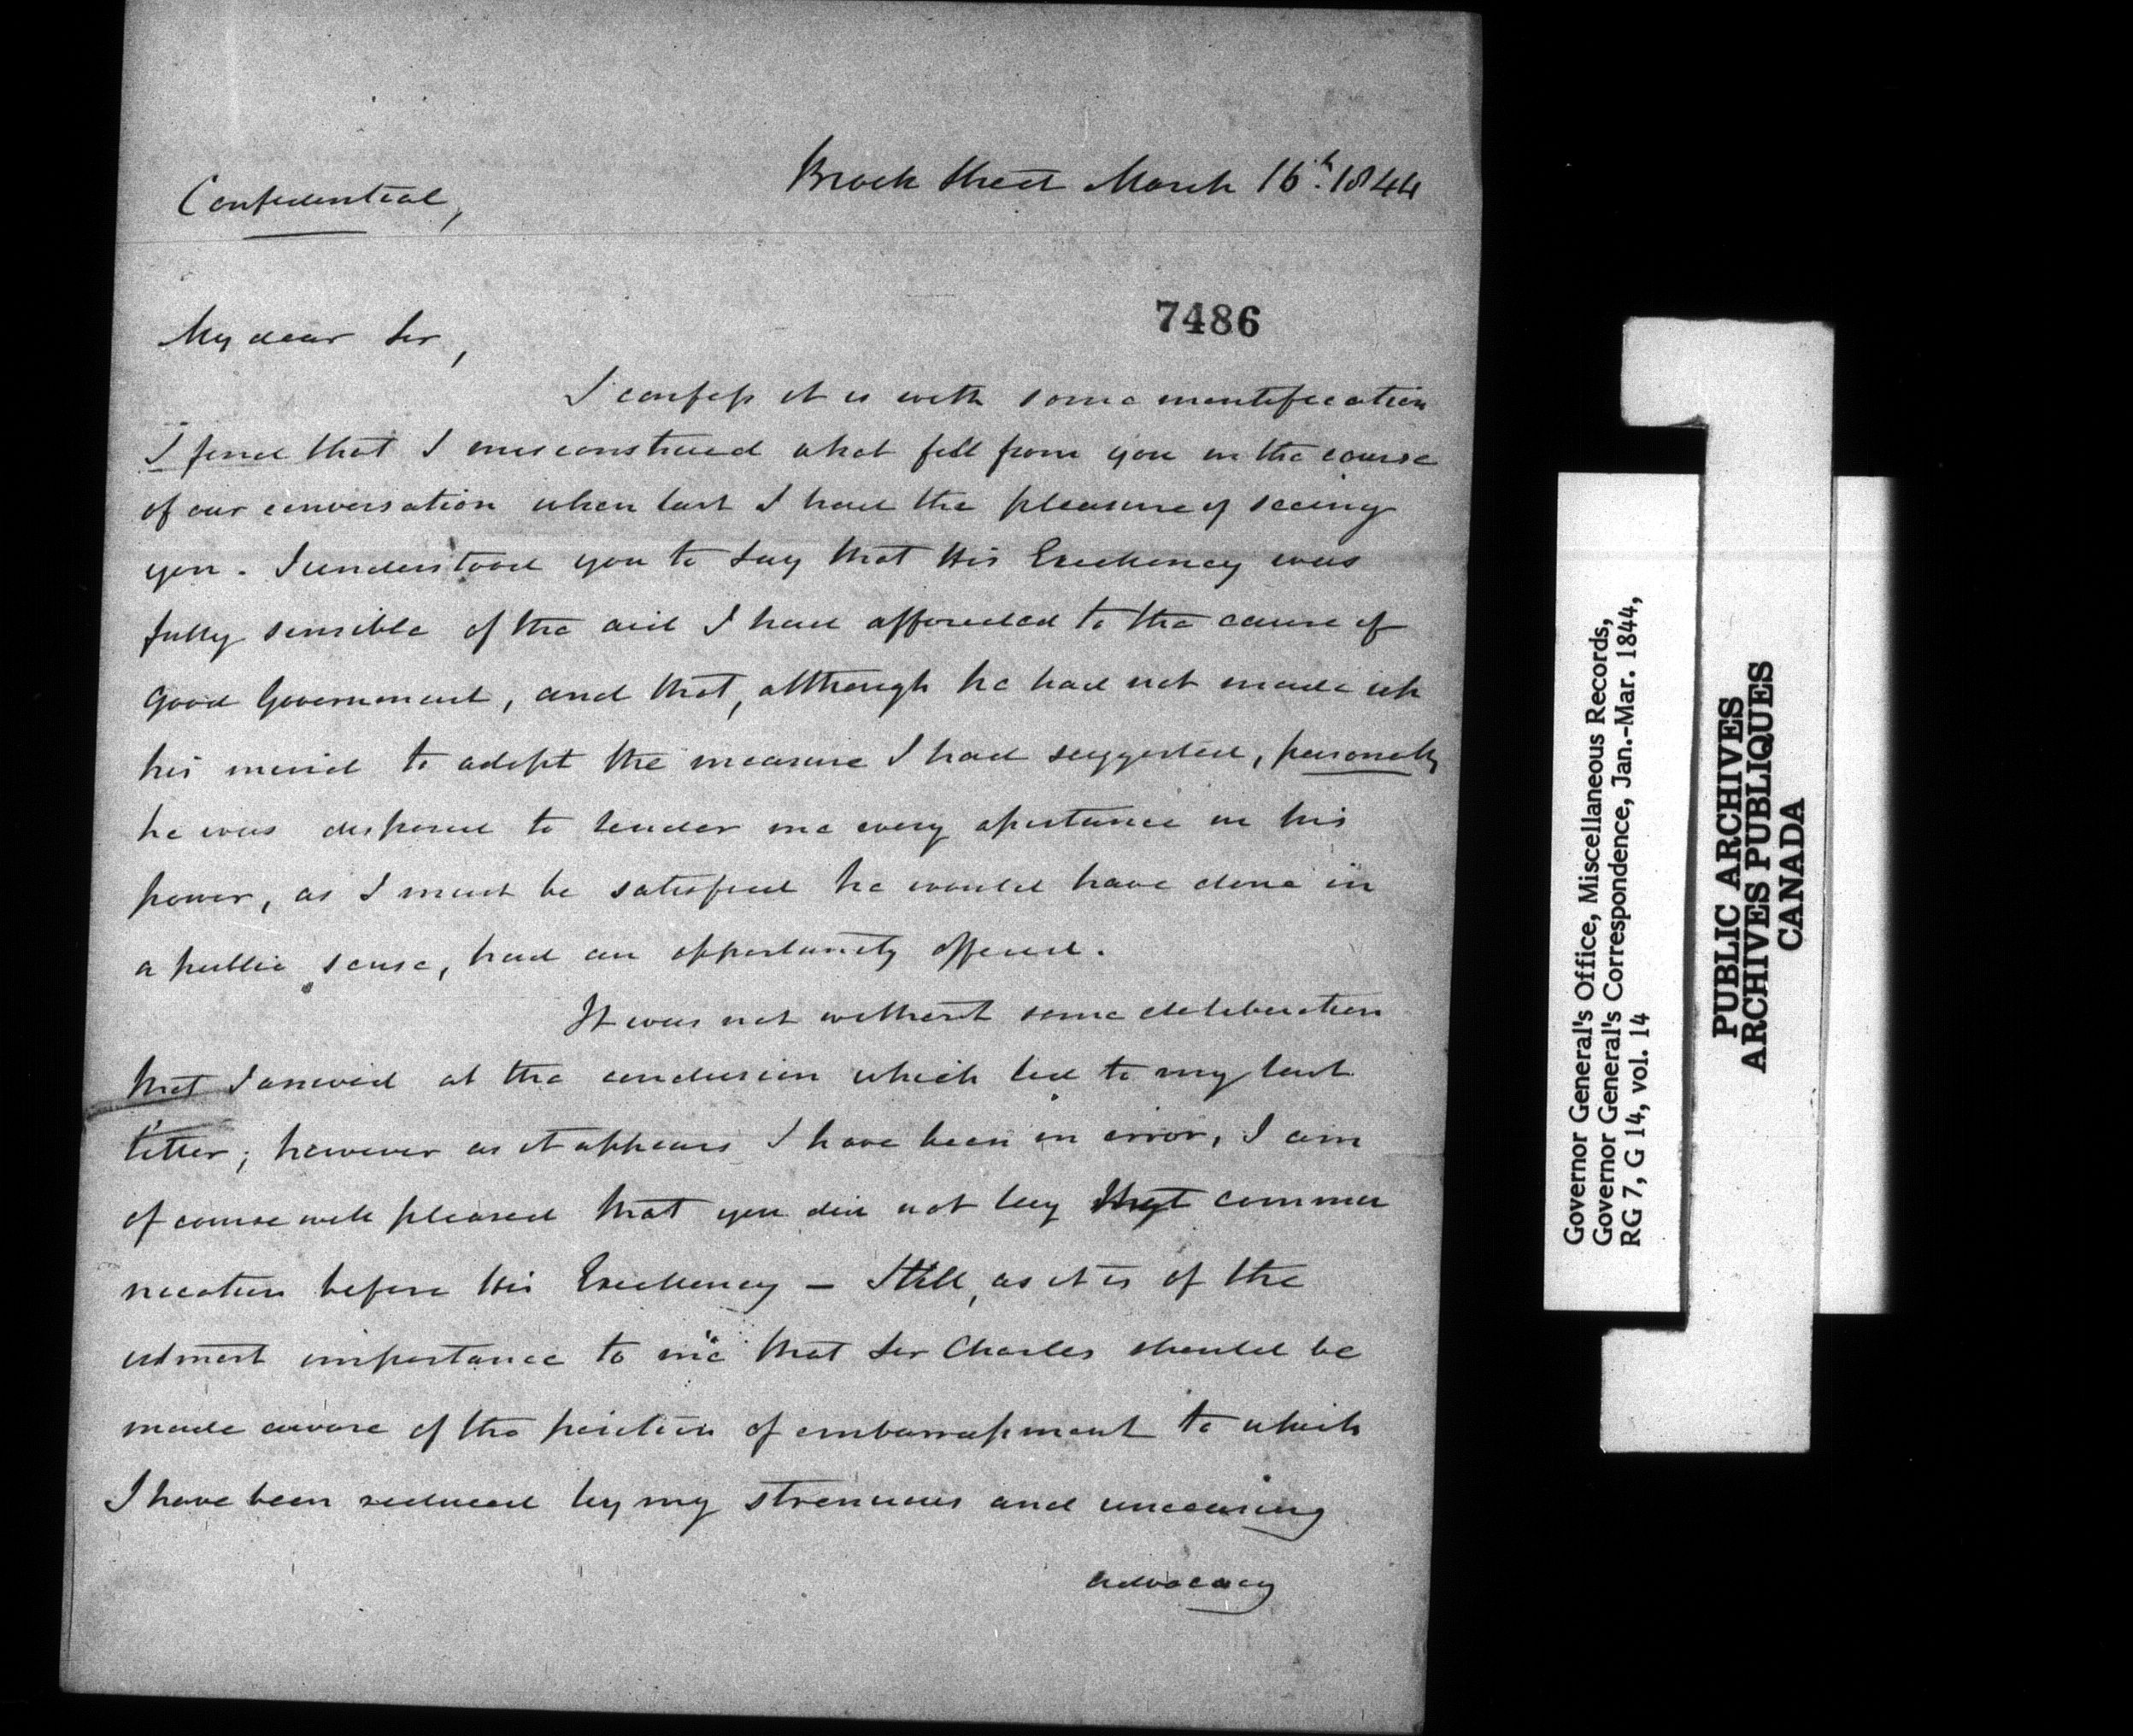 Confidential,
Brock Street March 16th. 1844
7486
My dear Sir,
I confess it is with some mortification
I find that I misconstrued what fell from you in the course
of our conversation when last I had the pleasure of seeing
you. I understood you to say that His Excellency was
fully sensible of the aid I had afforded to the cause of
good Government, and that, although he had not made up
his mind to adopt the measure I had suggested, personally
he was disposed to render me every assistance in his
power, as I must be satisfied he would have done in
a public sense, had an opportunity offered.
It was not without some deliberation
that I arrived at the conclusion which led to my last
letter; however as it appears I have been in error, I am
of course well pleased that you did not lay that commu
nication before His Excellency – Still, as it is of the
utmost importance to me that Sir Charles should be
made aware of the position of embarrassment to which
I have been reduced by my strenuous and unceasing
advocacy
Governor General's Office, Miscellaneous Records,
Governor General's Correspondence, Jan.-Mar. 1844,
RG 7, G 14, vol. 14
PUBLIC ARCHIVES
ARCHIVES PUBLIQUES
CANADA